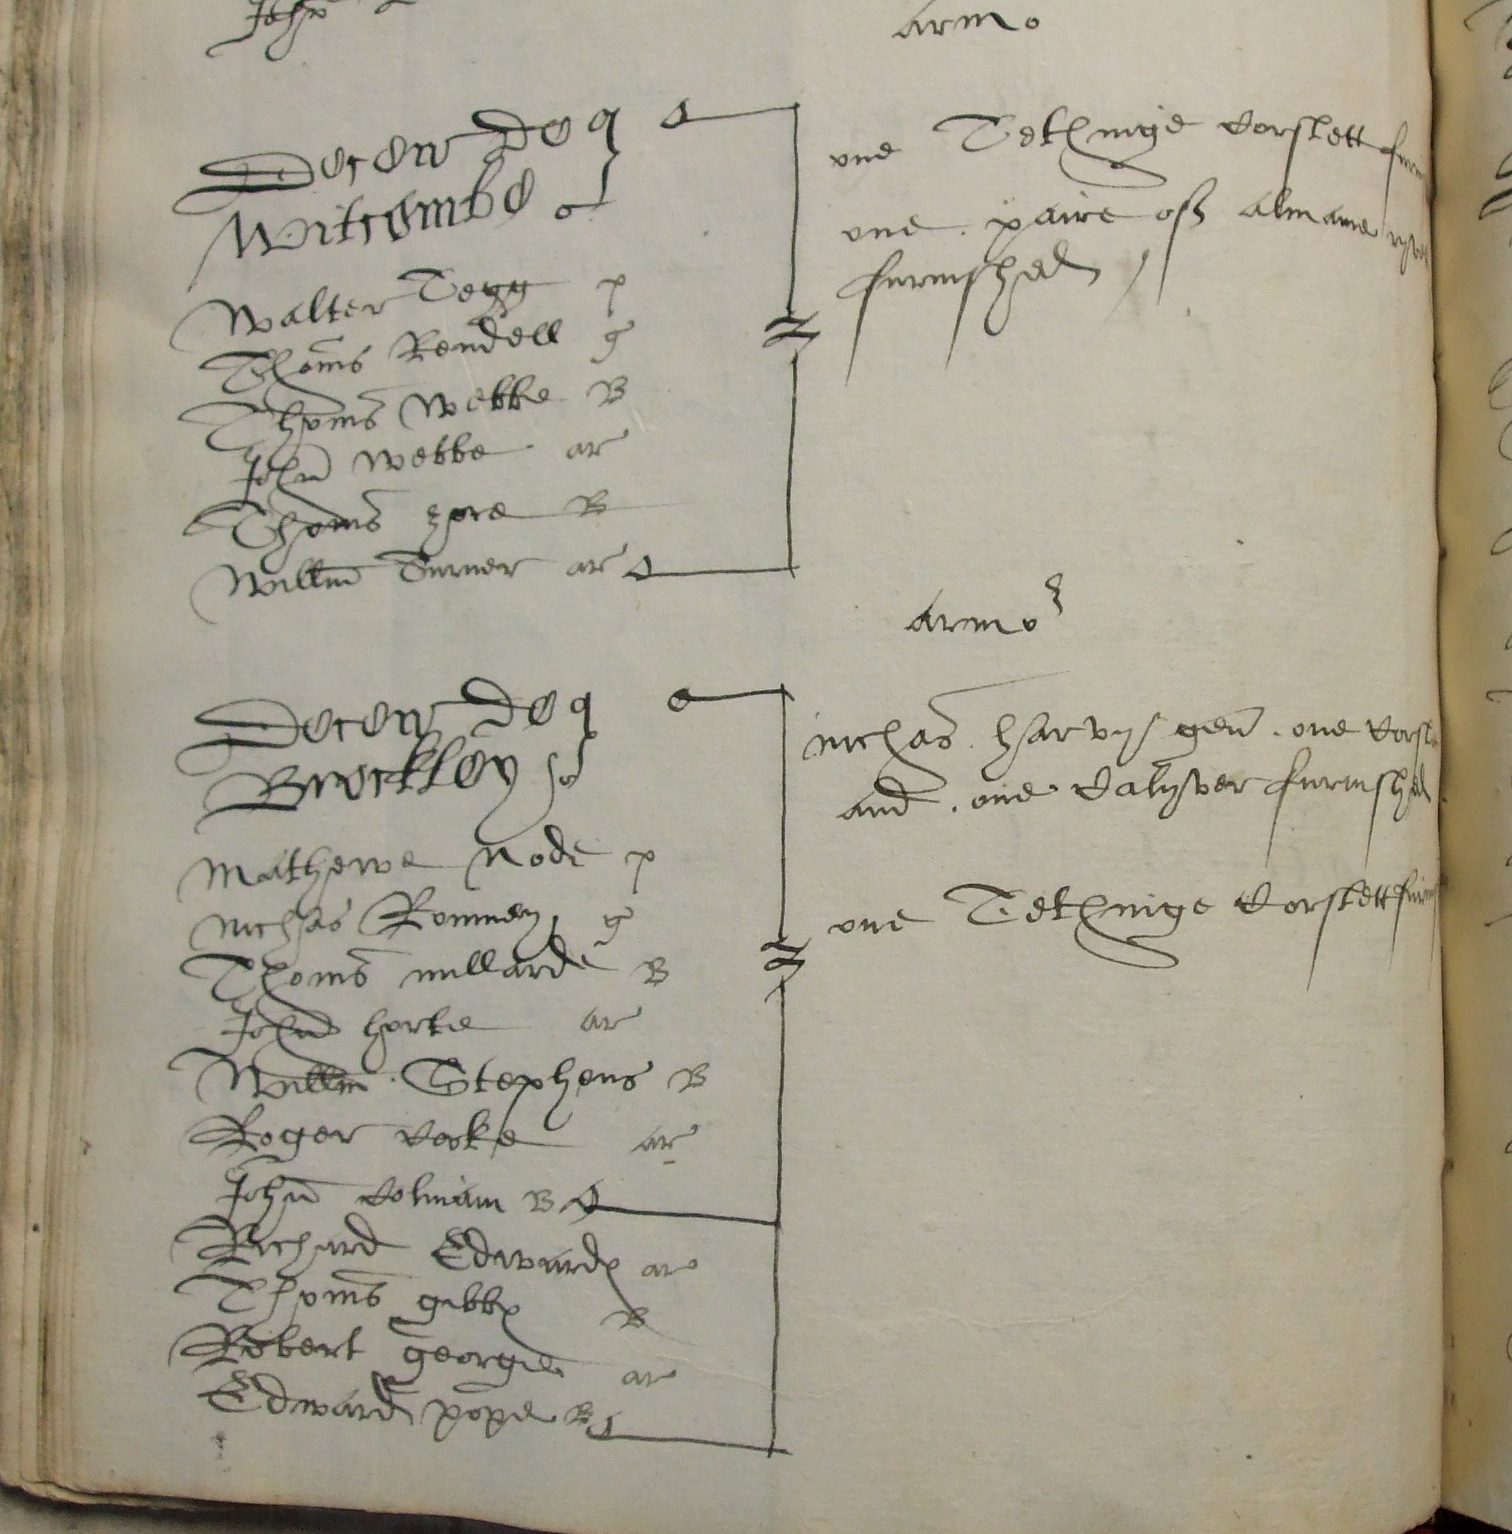 John
armo
Decen de
Witcombe
Walter Tegg p
Thoms Rendell g
Thoms Webbe B
John Webbe ar
Thoms hore B
Willm Turner ar
one Tethinge Corslett furn
one paire off almane ryve
furnished /
armor
Decen de
Brockley
Mathewe Node p
Nichas Romney g
Thoms Millarde B
John horte ar
Willm Stephens B
Roger Cooke ar
John Colmam B
Richard Edwards ar
Thoms gibbs B
Robert georgie ar
Edward pope B
Nichas harvy gen . one Corsl
and . one Calyver furnished
one Tethinge Corslett furni